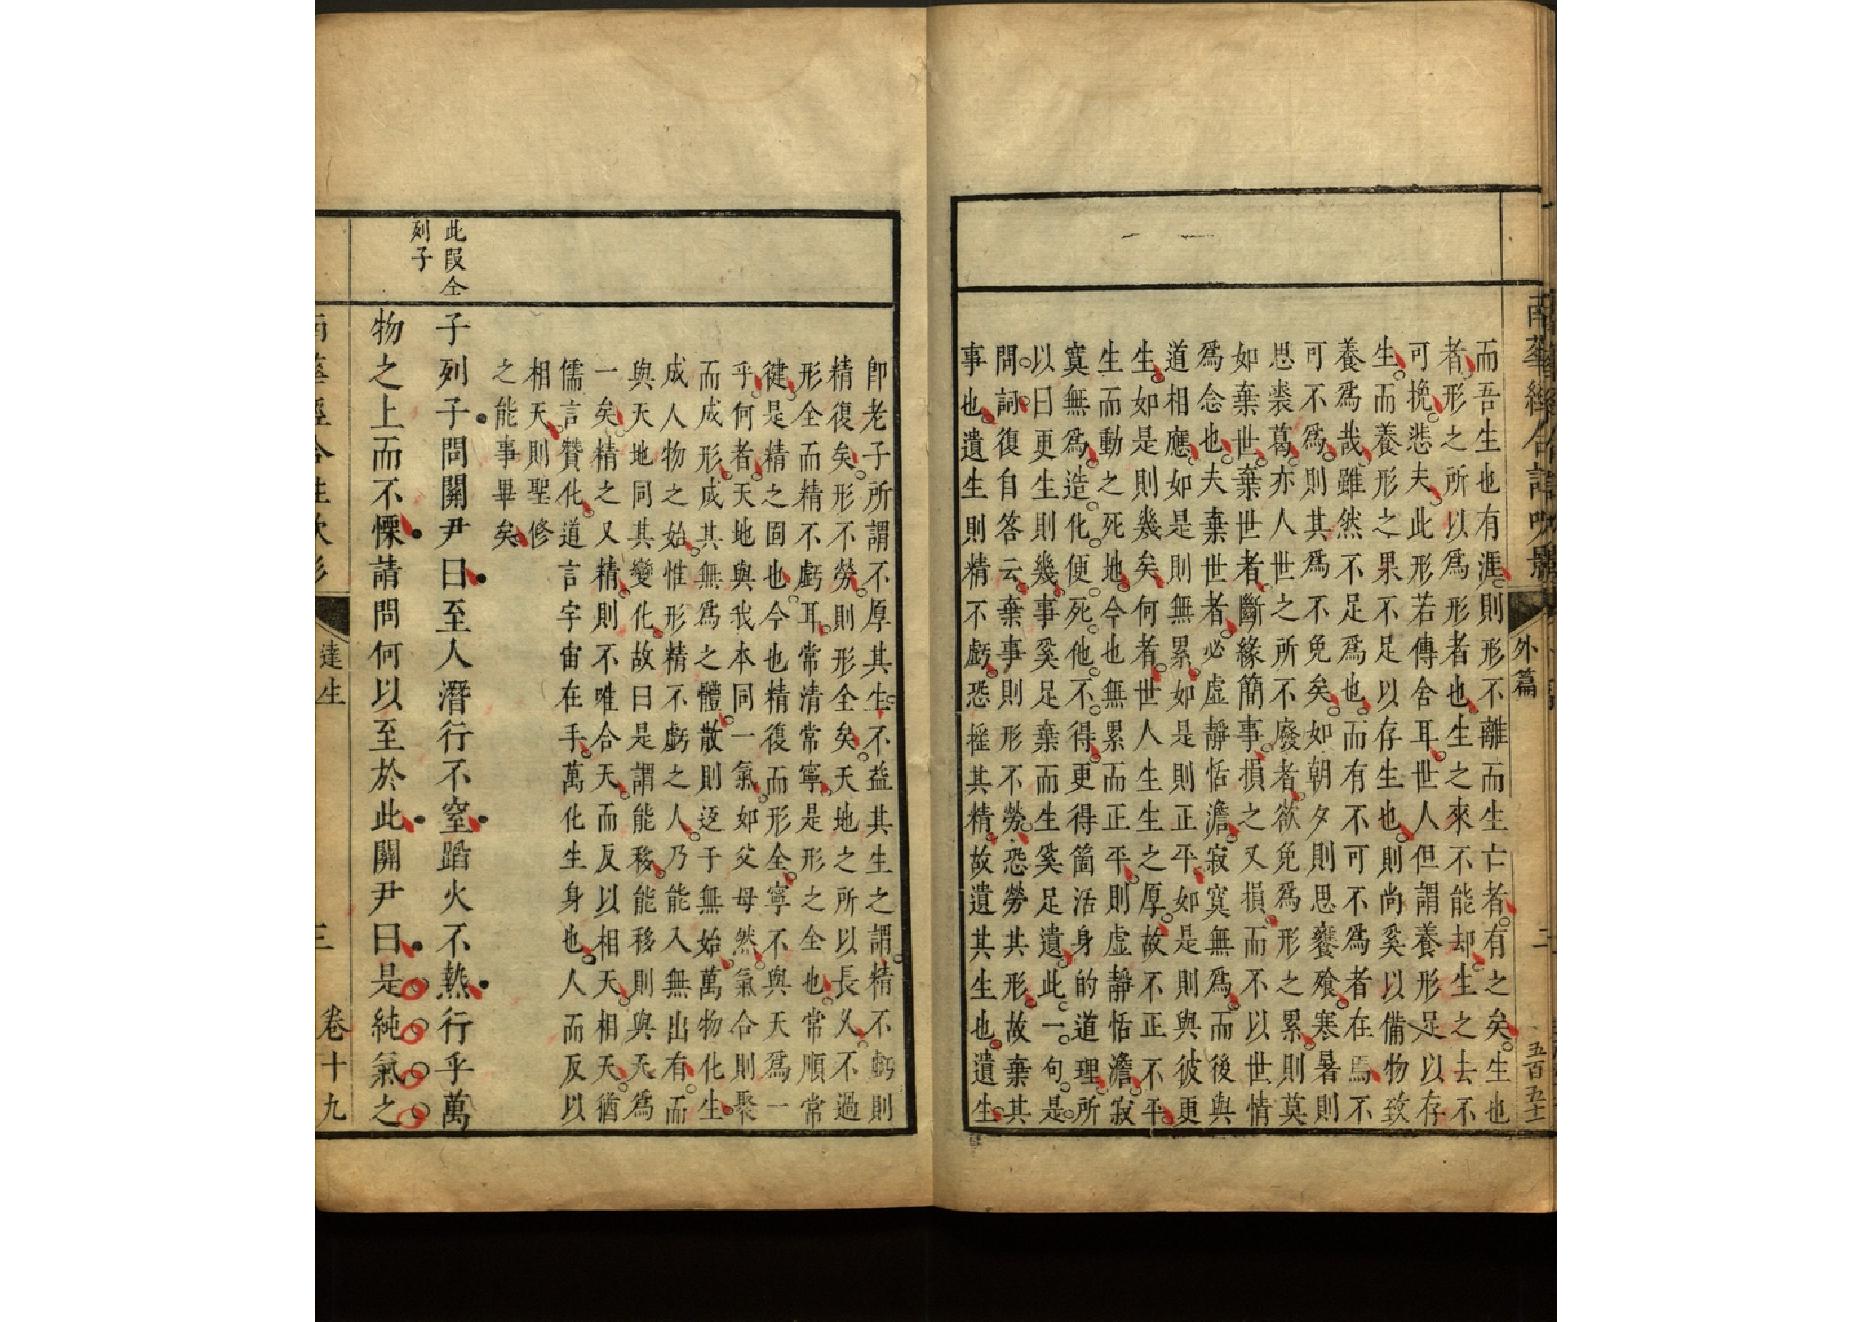 南華經合註吹影
外篇
二
五百五十
而吾生也有涯則形不離而生亡者有之矣生也
者形之所以爲形者也生之來不能却生之去不
可挽悲夫此形若傳舍耳世人但謂養形足以存
生而養形之果不足以存生也則尚奚以備物致
養爲哉雖然不足爲也而有不可不爲者在焉不
可不爲則其爲不免矣如朝夕則思饔飱寒暑則
思裘葛亦人世之所不廢者欲免爲形之累則莫
如棄世棄世者斷緣簡事損之又損而不以世情
爲念也夫棄世者必虛靜恬澹寂寞無爲而後與
道相應如是則無累如是則正平如是則與彼更
生如是則幾矣何者世人生生之厚故不正不平
生而動之死地今也無累而正平則虛靜恬澹寂
寞無爲造化便死他不得更得箇活身的道理所
以曰更生則幾事奚足棄而生奚足遺此一句是
問詞復自答云棄事則形不勞恐勞其形故棄其
事也遺生則精不虧恐搖其精故遺其生也遺生
卽老子所謂不厚其生不益其生之謂精不虧則
精復矣形不勞則形全矣天地之所以長久不過
形全而精不虧耳常清常寧是形之全也常順常
健是精之固也今也精復而形全寧不與天爲一
乎何者天地與我本同一氣如父母然氣合則聚
而成形成其無爲之體散則返于無始萬物化生
成人物之始惟形精不虧之人乃能入無出有而
與天地同其變化故曰是謂能移能移則與天爲
一矣精之又精則不唯合天而反以相天相天猶
儒言贊化道言宇宙在手萬化生身也人而反以
相天則聖修
之能事畢矣
此段全
列子
子列子問關尹曰至人潛行不窒蹈火不熱行乎萬
物之上而不慄請問何以至於此關尹曰是純氣之
南華經合註吹影
達生
三
卷十九